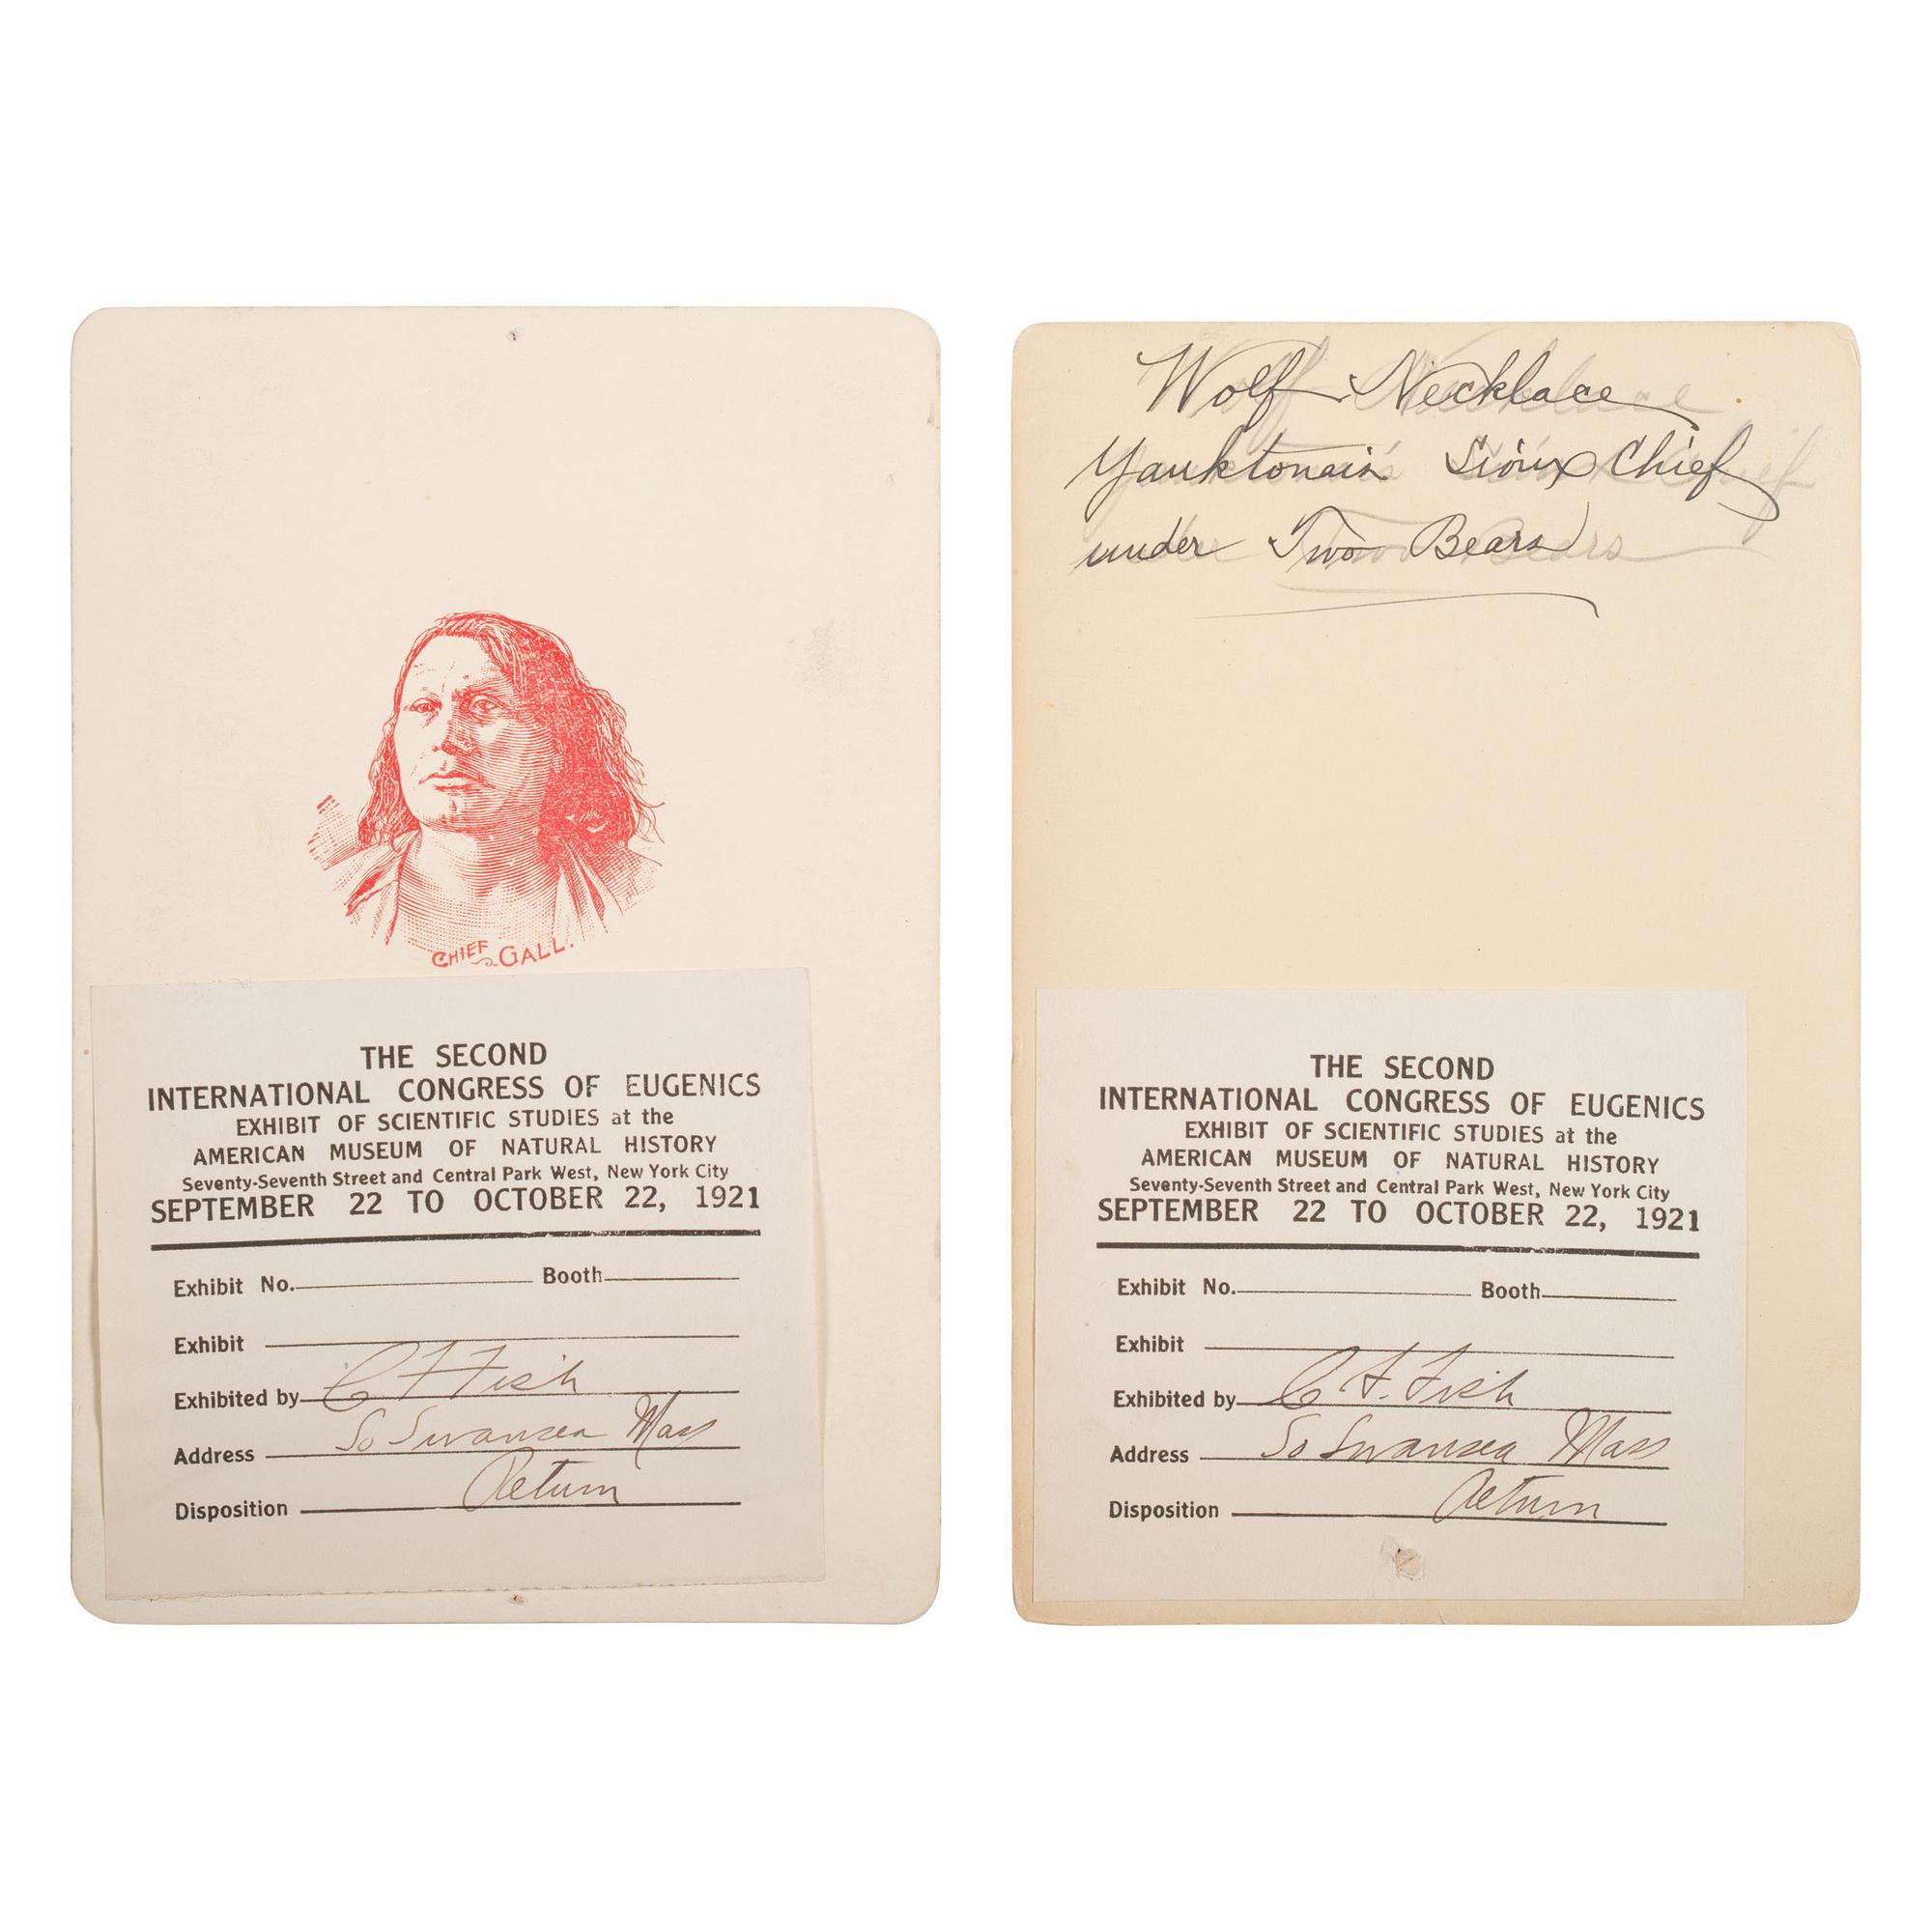 CHIEF GALL.
THE SECOND
INTERNATIONAL CONGRESS OF EUGENICS
EXHIBIT OF SCIENTIFIC STUDIES at the
AMERICAN MUSEUM OF NATURAL HISTORY
Seventy-Seventh Street and Central Park West, New York City
SEPTEMBER 22 TO OCTOBER 22, 1921
Exhibit No. Booth
Exhibit
Exhibited by C F Fish
Address So Swansea Mass
Disposition Return
Wolf Necklace
Yanktonais Sioux Chief
under Two Bears
THE SECOND
INTERNATIONAL CONGRESS OF EUGENICS
EXHIBIT OF SCIENTIFIC STUDIES at the
AMERICAN MUSEUM OF NATURAL HISTORY
Seventy-Seventh Street and Central Park West, New York City
SEPTEMBER 22 TO OCTOBER 22, 1921
Exhibit No. Booth
Exhibit
Exhibited by C F. Fish
Address So Swansea Mass
Disposition Return